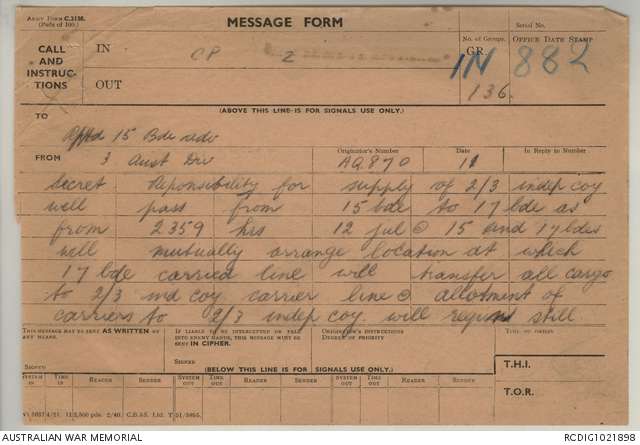 ARMY FORM C.2136.
(Pads of 100.)
MESSAGE FORM
Serial No.
CALL
AND
INSTRUC-
TIONS
IN
CP
2
No. of Groups.
GR.
OFFICE DATE STAMP
IN 882
OUT
136.
(ABOVE THIS LINE IS FOR SIGNALS USE ONLY.)
TO
15 Bde
FROM
3 Aust Div
Originator's Number
AQ870
Date
11
In Reply to Number
Secret Reponsibility for supply of 2/3 indep coy
will pass from 15 bde to 17 bde as
from 2359 hrs 12 jul @ 15 and 17 bdes
will mutually arrange location at which
17 bde carried line will transfer all cargo
to 2/3 ind coy carrier line @ allotment of
carriers to 2/3 indep coy. will still.
THIS MESSAGE MAY BE SENT AS WRITTEN BY
ANY MEANS.
SIGNED
IF LIABLE TO BE INTERCEPTED OR FALL
INTO ENEMY HANDS, THIS MESSAGE MUST BE
SENT IN CIPHER.
SIGNED
ORIGINATOR'S INSTRUCTIONS
DEGREE OF PRIORITY
TIME OF ORIGIN
(BELOW THIS LINE IS FOR SIGNALS USE ONLY.)
T.H.I.
SYSTEM IN
TIME IN
READER
SENDER
SYSTEM OUT
TIME OUT
READER
SENDER
SYSTEM OUT
TIME OUT
READER
SENDER
T.O.R.
AUSTRALIAN WAR MEMORIAL
RCDIG1021898